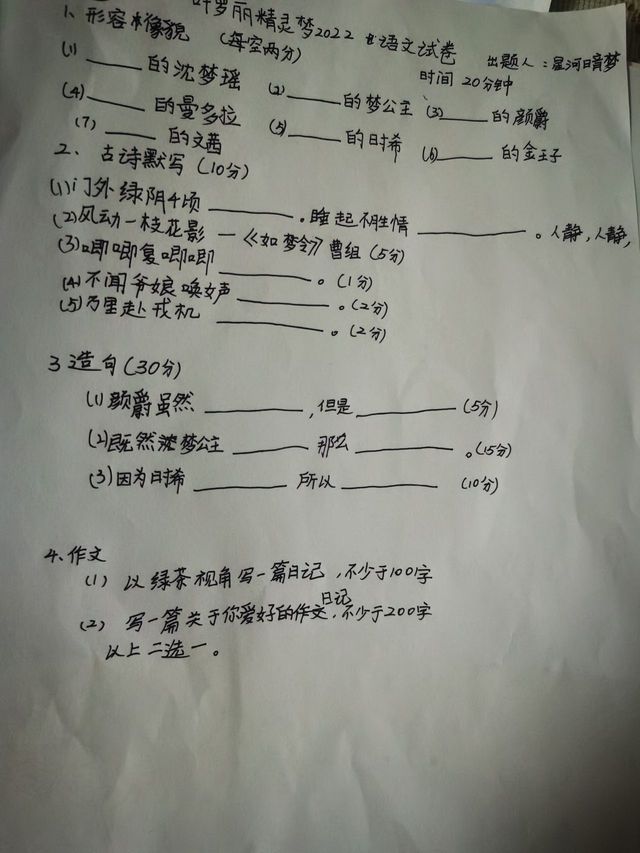 叶罗丽精灵梦2022 语文试卷
1、形容相貌 (每空两分) 出题人：星河日奇梦
时间 20分钟
(1) ______ 的沈梦瑶 (2) ______ 的梦公主 (3) ______ 的颜爵
(4) ______ 的曼多拉 (5) ______ 的时希 (6) ______ 的金王子
(7) ______ 的文茜
2、古诗默写 (10分)
(1) 门外绿阴千顷 ______ 。睡起不胜情 ______ 。人静，人静，
(2) 风动一枝花影 —《如梦令》曹组 (5分)
(3) 唧唧复唧唧 ______ 。(1分)
(4) 不闻爷娘唤女声 ______ 。(2分)
(5) 万里赴戎机 ______ 。(2分)
3 造句 (30分)
(1) 颜爵虽然 ______ ，但是 ______ (5分)
(2) 既然沈梦公主 ______ 那么 ______ 。(15分)
(3) 因为时希 ______ 所以 ______ (10分)
4、作文
(1) 以绿茶视角写一篇日记，不少于100字
日记
(2) 写一篇关于你爱好的作文，不少于200字
以上二选一。